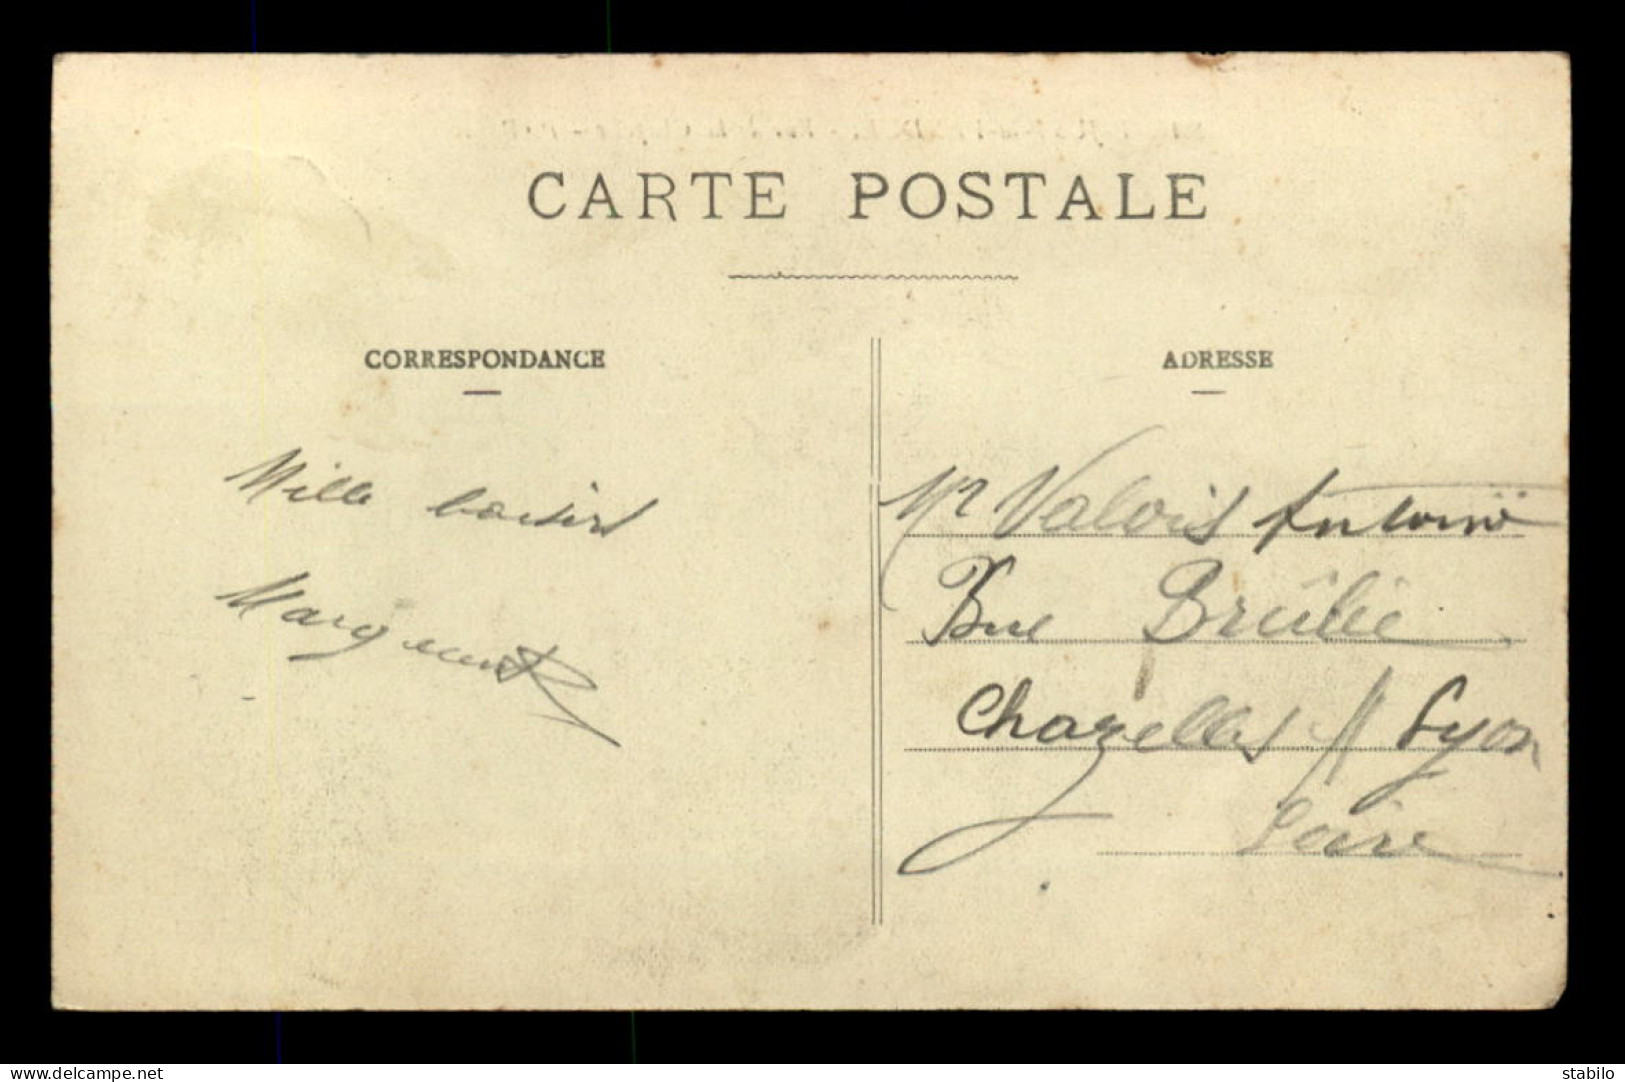 CARTE POSTALE
CORRESPONDANCE
Mille baisers
Marguerite
ADRESSE
Mr Valois Antoine
Rue Brûlée
Chazelles s/ Lyon
Loire
www.delcampe.net
stabilo